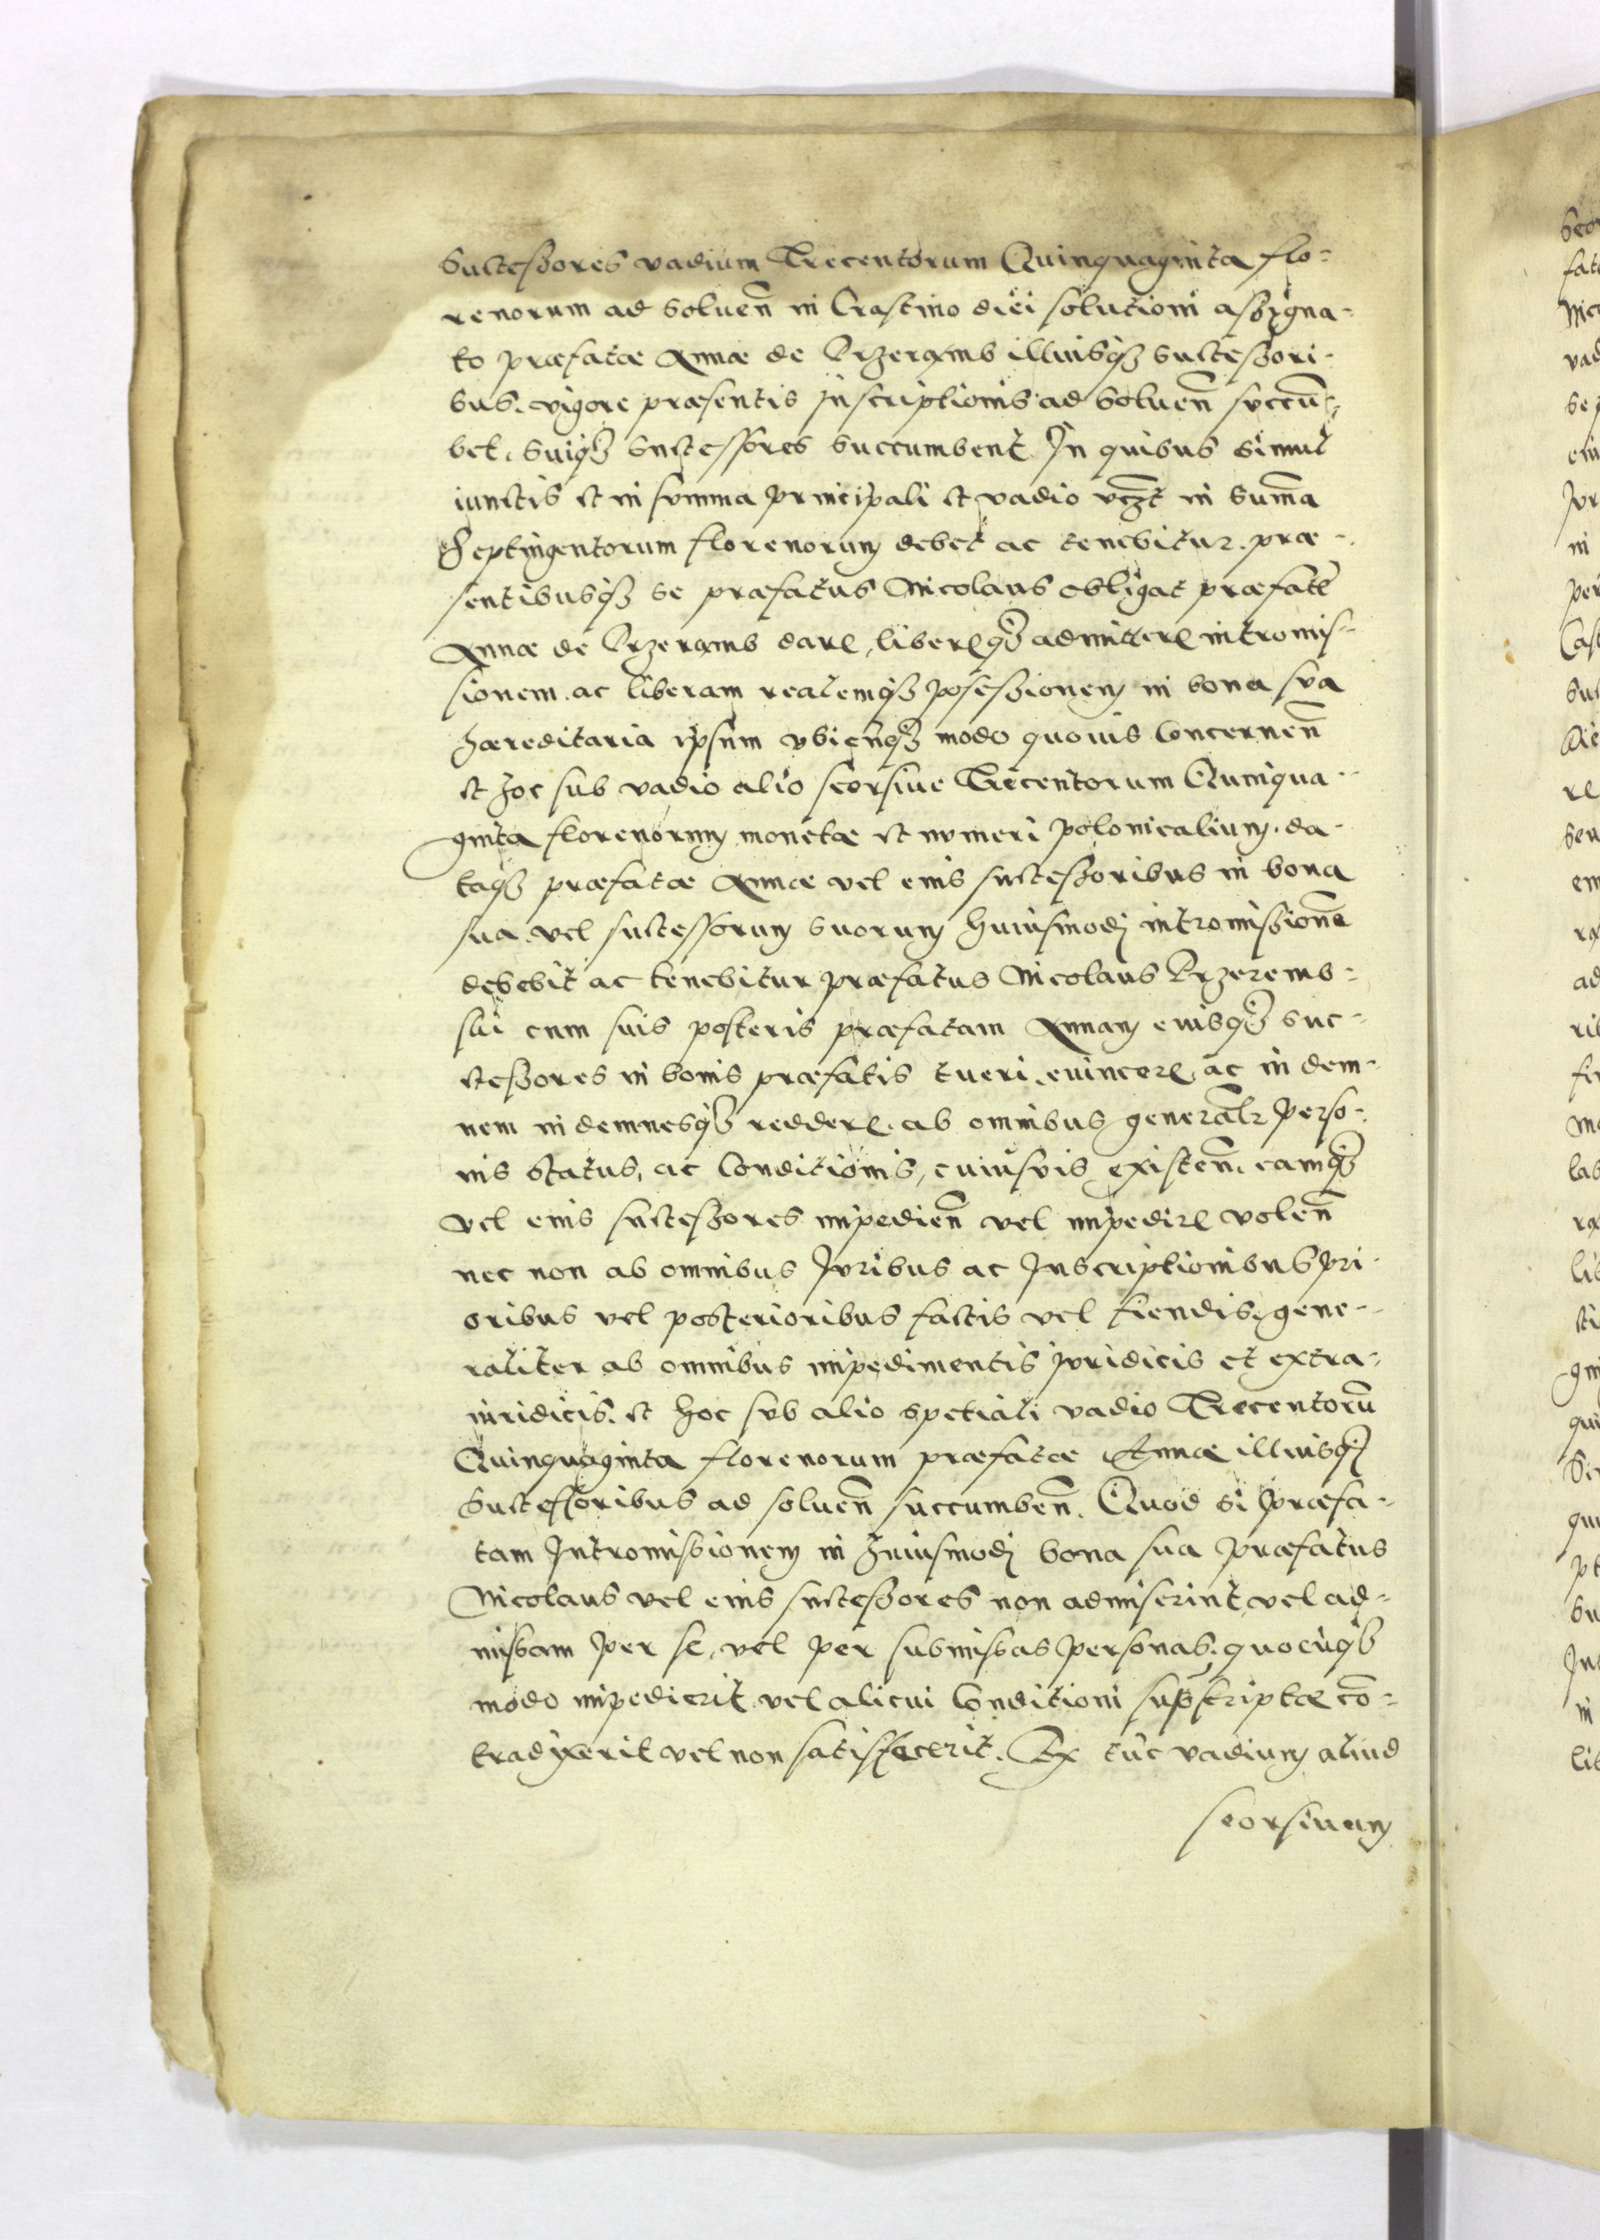 Successores vadium Trecentorum Quinquaginta flo-
renorum ad soluen̄ in Crastino diei solutioni assigna-
to præfatæ Annæ de Krzeramb illiusq₃ successori-
bus. vigore præsentis inscriptionis ad soluen̄ succū-
bet. suiq₃ successores succumbent In quibus simul
iunctis et in summa principali et vadio vcz̄t in sum̄a
Septingentorum florenorum debet ac tenebitur. præ-
sentibusq₃ se præfatus Nicolaus obligat præfatæ
Annæ de Krzeramb dare, libereq₃ admittere intromis-
sionem. ac liberam realemq₃ possessionem in bona sua
hæreditaria ipsum vbicūq₃ modo quouis Concernen̄
et hoc sub vadio alio seorsiue Trecentorum Quinqua-
ginta florenorum monetæ et numeri polonicalium. da-
taq₃ præfatæ Annæ vel eius successoribus in bona
sua vel successorum suorum huiusmodj intromissione
debebit ac tenebitur præfatus Nicolaus Krzeremb-
ski cum suis posteris præfatam Annam eiusq₃ suc-
cessores in bonis præfatis tueri. euincere, ac in dem-
nem indemnesq₃ reddere. ab omnibus gener̄alr perso-
nis status, ac Conditionis, cuiusuis existen̄. eamq₃
vel eius successores impedien̄ vel impedire volen̄
nec non ab omnibus Juribus ac Inscriptionibus pri-
oribus vel posterioribus factis vel fiendis, gene-
raliter ab omnibus impedimentis juridicis et extra-
iuridicis. et hoc sub alio spetiali vadio Trecentorū
Quinquaginta florenorum præfatæ Annæ illiusq₃
Successoribus ad soluen̄ succumben̄. Quod si præfa-
tam Intromissionem in huiusmodj bona sua præfatus
Nicolaus vel eius successores non admiserint, vel ad-
missam per se, vel per submissas personas. quocūq₃
modo impedierit vel alicui Conditioni supscriptæ cō-
tradixerit vel non satisfecerit. Ex tūc vadium aliud
seorsiuum